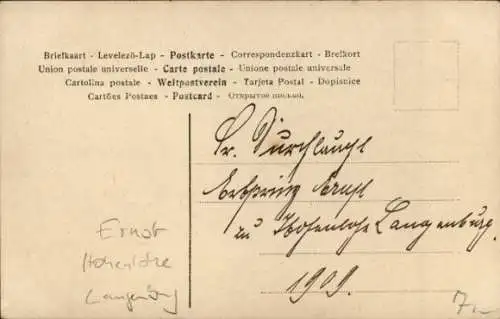 Briefkaart - Levelező-Lap - Postkarte - Correspondenzkart - Brefkort
Union postale universelle - Carte postale - Unione postale universale
Cartolina postale - Weltpostverein - Tarjeta Postal - Dopisnice
Cartões Postaes - Postcard - Открытое письмо.
Sr. Durchlaucht
Erbprinz Ernst
zu Hohenlohe Langenburg.
1909.
Ernst
Hohenlohe
Langenburg
7,-